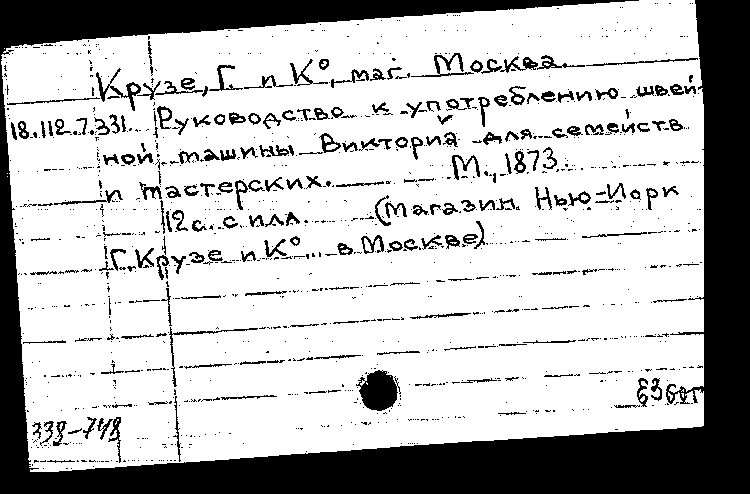 Крузе, Г. и К°, маг. Москва.
18.112.7.331. Руководство к употреблению швей-
ной машины Виктория для семейств
и мастерских. М., 1873.
12 с. с илл. (Магазин Нью-Иорк
Г. Крузе и К° в Москве)
338-748